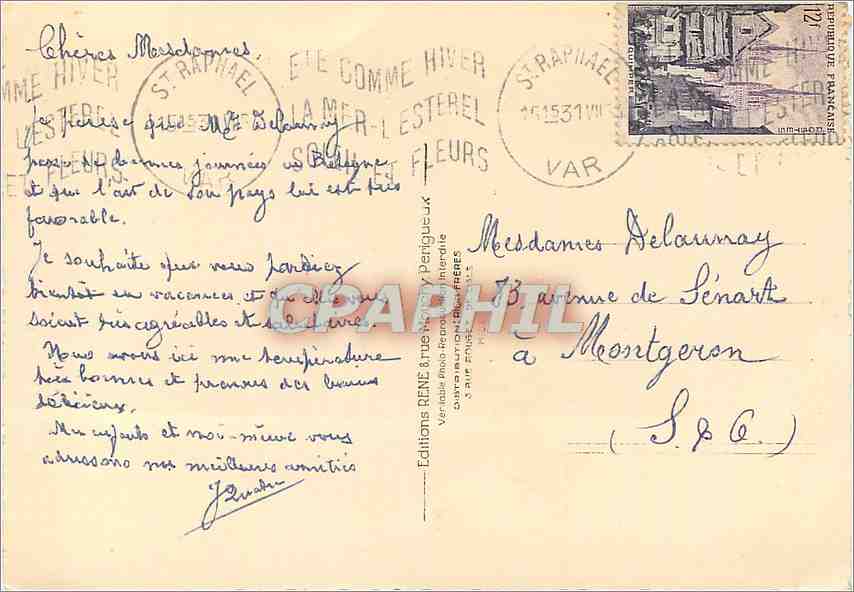 Chères Mesdames,
Je pense que Mr Delaunay
passe de bonnes journées en Bretagne
et que l'air de son pays lui est très
favorable.
Je souhaite que vous partiez
bientôt en vacances et qu'elles vous
soient très agréables et salutaires.
Nous avons ici une température
très bonne et prenons des bains
délicieux.
Mes enfants et moi-même vous
adressons nos meilleures amitiés
ST RAPHAEL
VAR
ÉTÉ COMME HIVER
LA MER-L'ESTEREL
SOLEIL ET FLEURS
ST RAPHAEL
15 15 31 VII
VAR
12f
REPUBLIQUE FRANÇAISE
QUIMPER
Editions RENE 8, rue Perigueux
Véritable Photo-Reproduction Interdite
Mesdames Delaunay
83 avenue de Sénart
à Montgeron
(S. & O.)
CPAPHIL